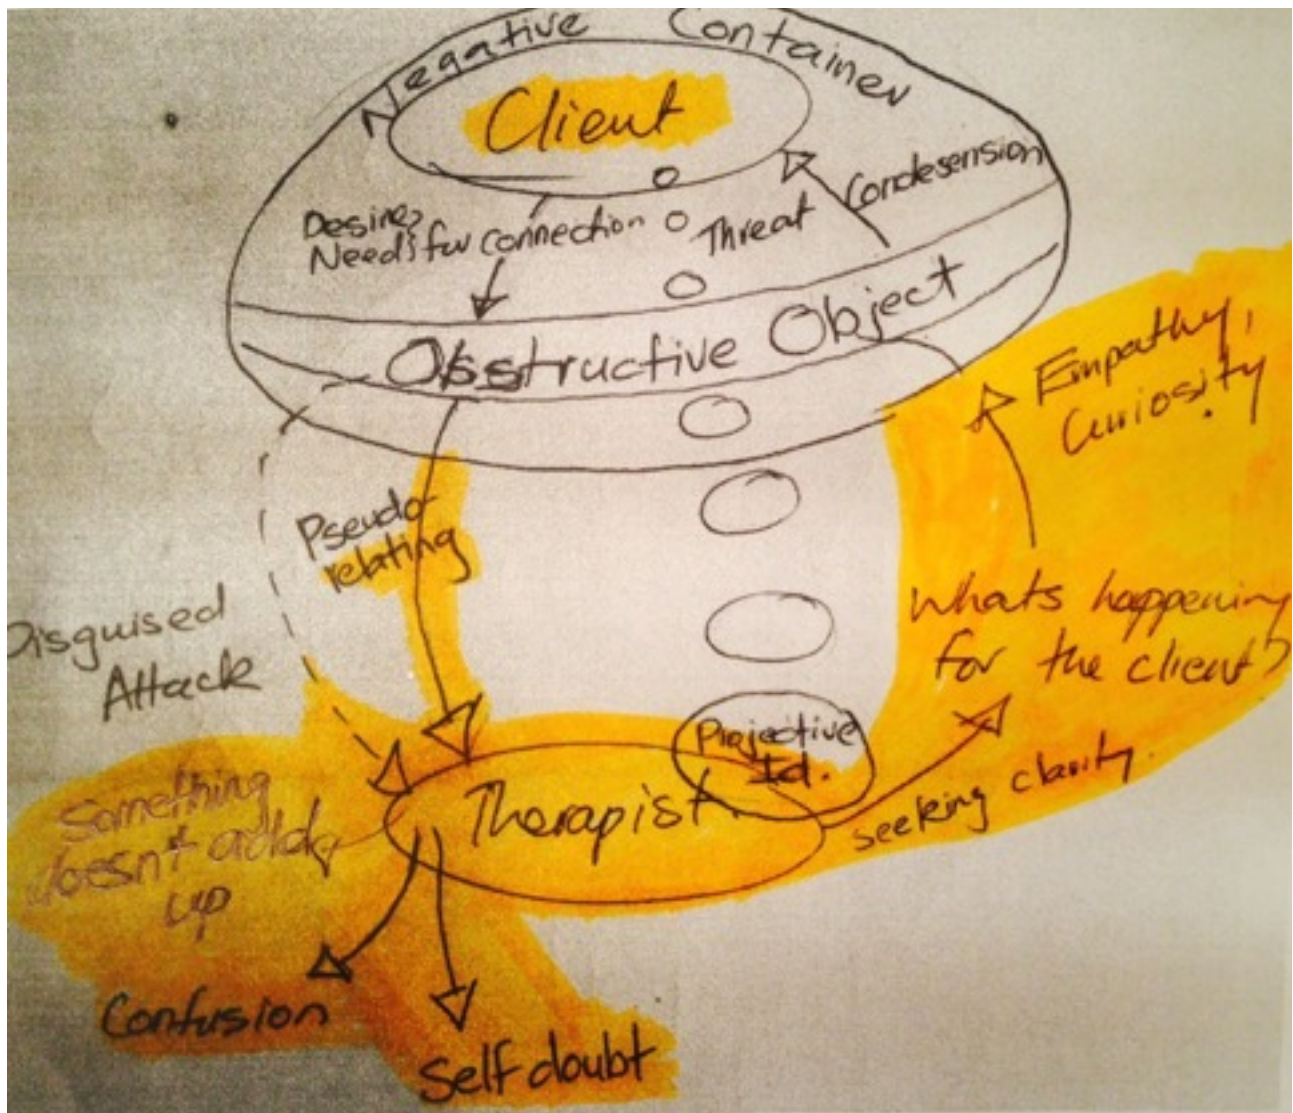 Negative Container
Client
Desires
Needs for connection
Threat
Condesension
Obstructive Object
Empathy,
Curiosity
Pseudo-
relating
Disguised
Attack
Whats happening
for the client?
Projective
Id.
Therapist
seeking clarity.
Something
doesn't add
up
Confusion
Self doubt